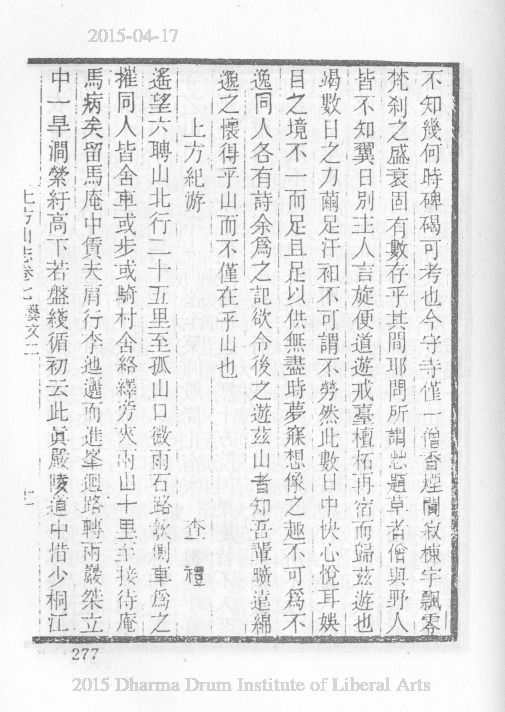 2015-04-17
不知幾何時碑碣可考也今守寺僅一僧香煙闃寂棟宇飄零
梵刹之盛衰固有數存乎其間耶問所謂恕題草者僧與野人
皆不知翼日別主人言旋便道遊戒臺檀柘再宿而歸茲遊也
竭數日之力繭足汗衵不可謂不勞然此數日中快心悅耳娛
目之境不一而足且足以供無盡時夢寐想像之趣不可爲不
逸同人各有詩余爲之記欲令後之遊茲山者知吾輩曠遠綿
邈之懷得乎山而不僅在乎山也
上方紀游 查禮
遙望六聘山北行二十五里至孤山口微雨石路欹側車爲之
摧同人皆舍車或步或騎村舍絡繹旁夾兩山十里至接待庵
馬病矣留馬庵中賃夫肩行李迆邐而進峯迴路轉兩巖桀立
中一旱澗縈紆高下若盤綫循初云此眞嚴陵道中惜少桐江
上方山志卷七藝文二
十一
277
2015 Dharma Drum Institute of Liberal Arts